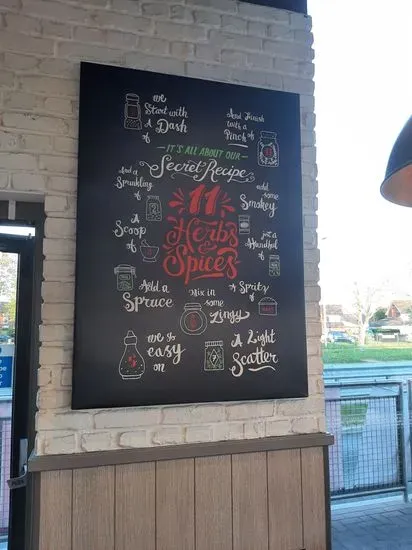 we
Start with
a
Dash
of
And Finish
with a
Pinch of
IT'S ALL ABOUT OUR
Secret Recipe
And a
Sprinkling
of
add
some
Smokey
11
Herbs
&
Spices
A
Scoop
of
just a
Handful
of
Add a
Spruce
Mix in
some
Zingy
A Spritz
of
we go
easy
on
A Light
Scatter
of